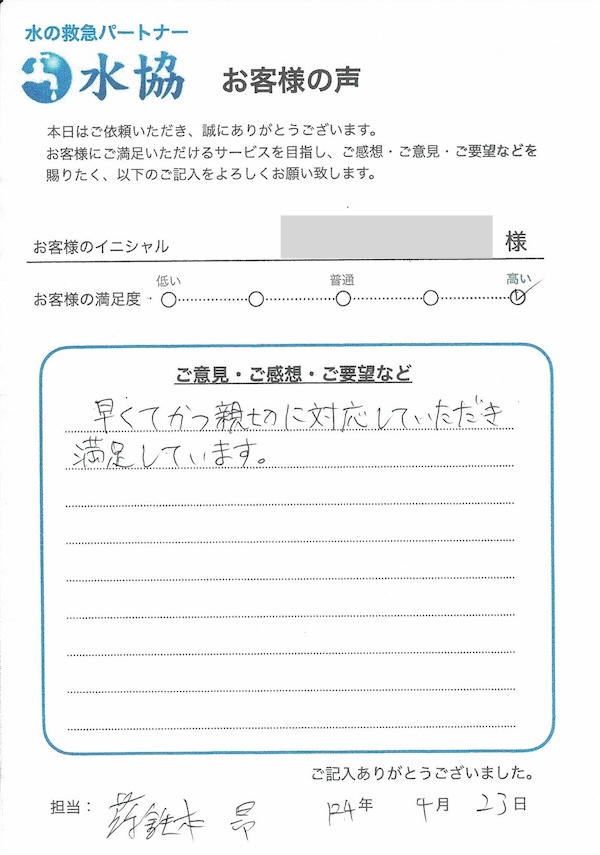 水の救急パートナー
水協 お客様の声
本日はご依頼いただき、誠にありがとうございます。
お客様にご満足いただけるサービスを目指し、ご感想・ご意見・ご要望などを
賜りたく、以下のご記入をよろしくお願い致します。
お客様のイニシャル 様
低い 普通 高い
お客様の満足度
ご意見・ご感想・ご要望など
早くてかつ親切に対応していただき
満足しています。
ご記入ありがとうございました。
担当: 昂 年 4月 23日